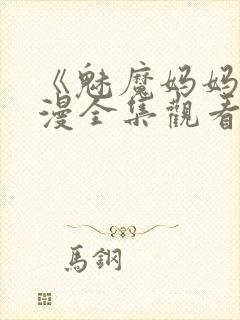 《魅魔妈妈
漫全集觀看
馬鋼